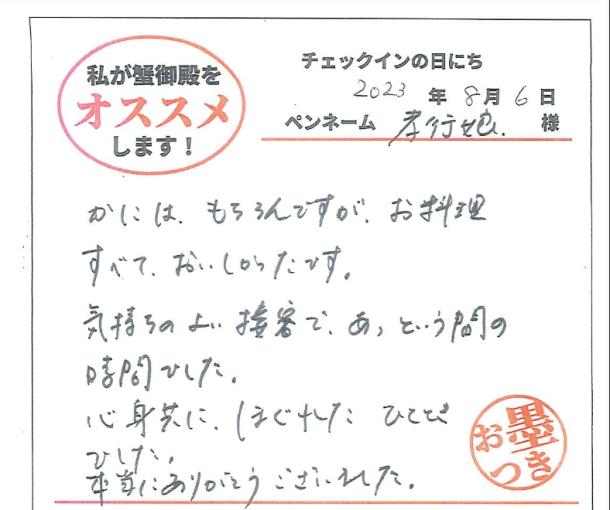 私が蟹御殿を
オススメ
します！
チェックインの日にち
2023 年 8月 6日
ペンネーム 孝行娘. 様
かには、もちろんですが、お料理
すべて、おいしかったです。
気持ちのよい接客で、あっという間の
時間でした。
心身共に、ほぐれた ひととき
でした。
本当にありがとうございました。
お墨
つき